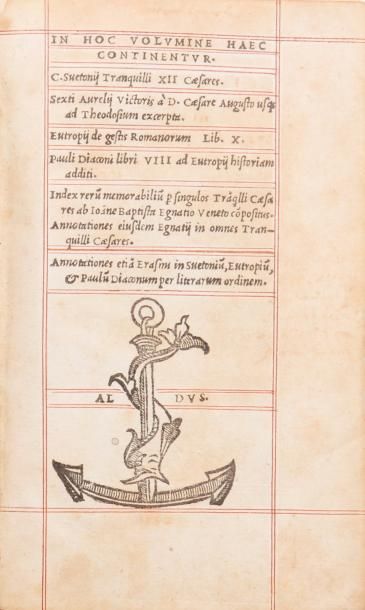 IN HOC VOLVMINE HAEC
CONTINENTVR.
C. Suetonij Tranquilli XII Cæsares.
Sexti Aurelij Victoris à D. Cæsare Augusto usq;
ad Theodosium excerpta.
Eutropij de gestis Romanorum Lib. X.
Pauli Diaconi libri VIII ad Eutropij historiam
additi.
Index rerū memorabiliū p singulos Trāq̃lli Cæsa
res ab Ioāne Baptista Egnatio Veneto cōpositus.
Annotationes eiusdem Egnatij in omnes Tran-
quilli Cæsares.
Annotationes etiā Erasmi in Suetoniū, Eutropiū,
& Paulū Diaconum per literarum ordinem.
AL DVS.